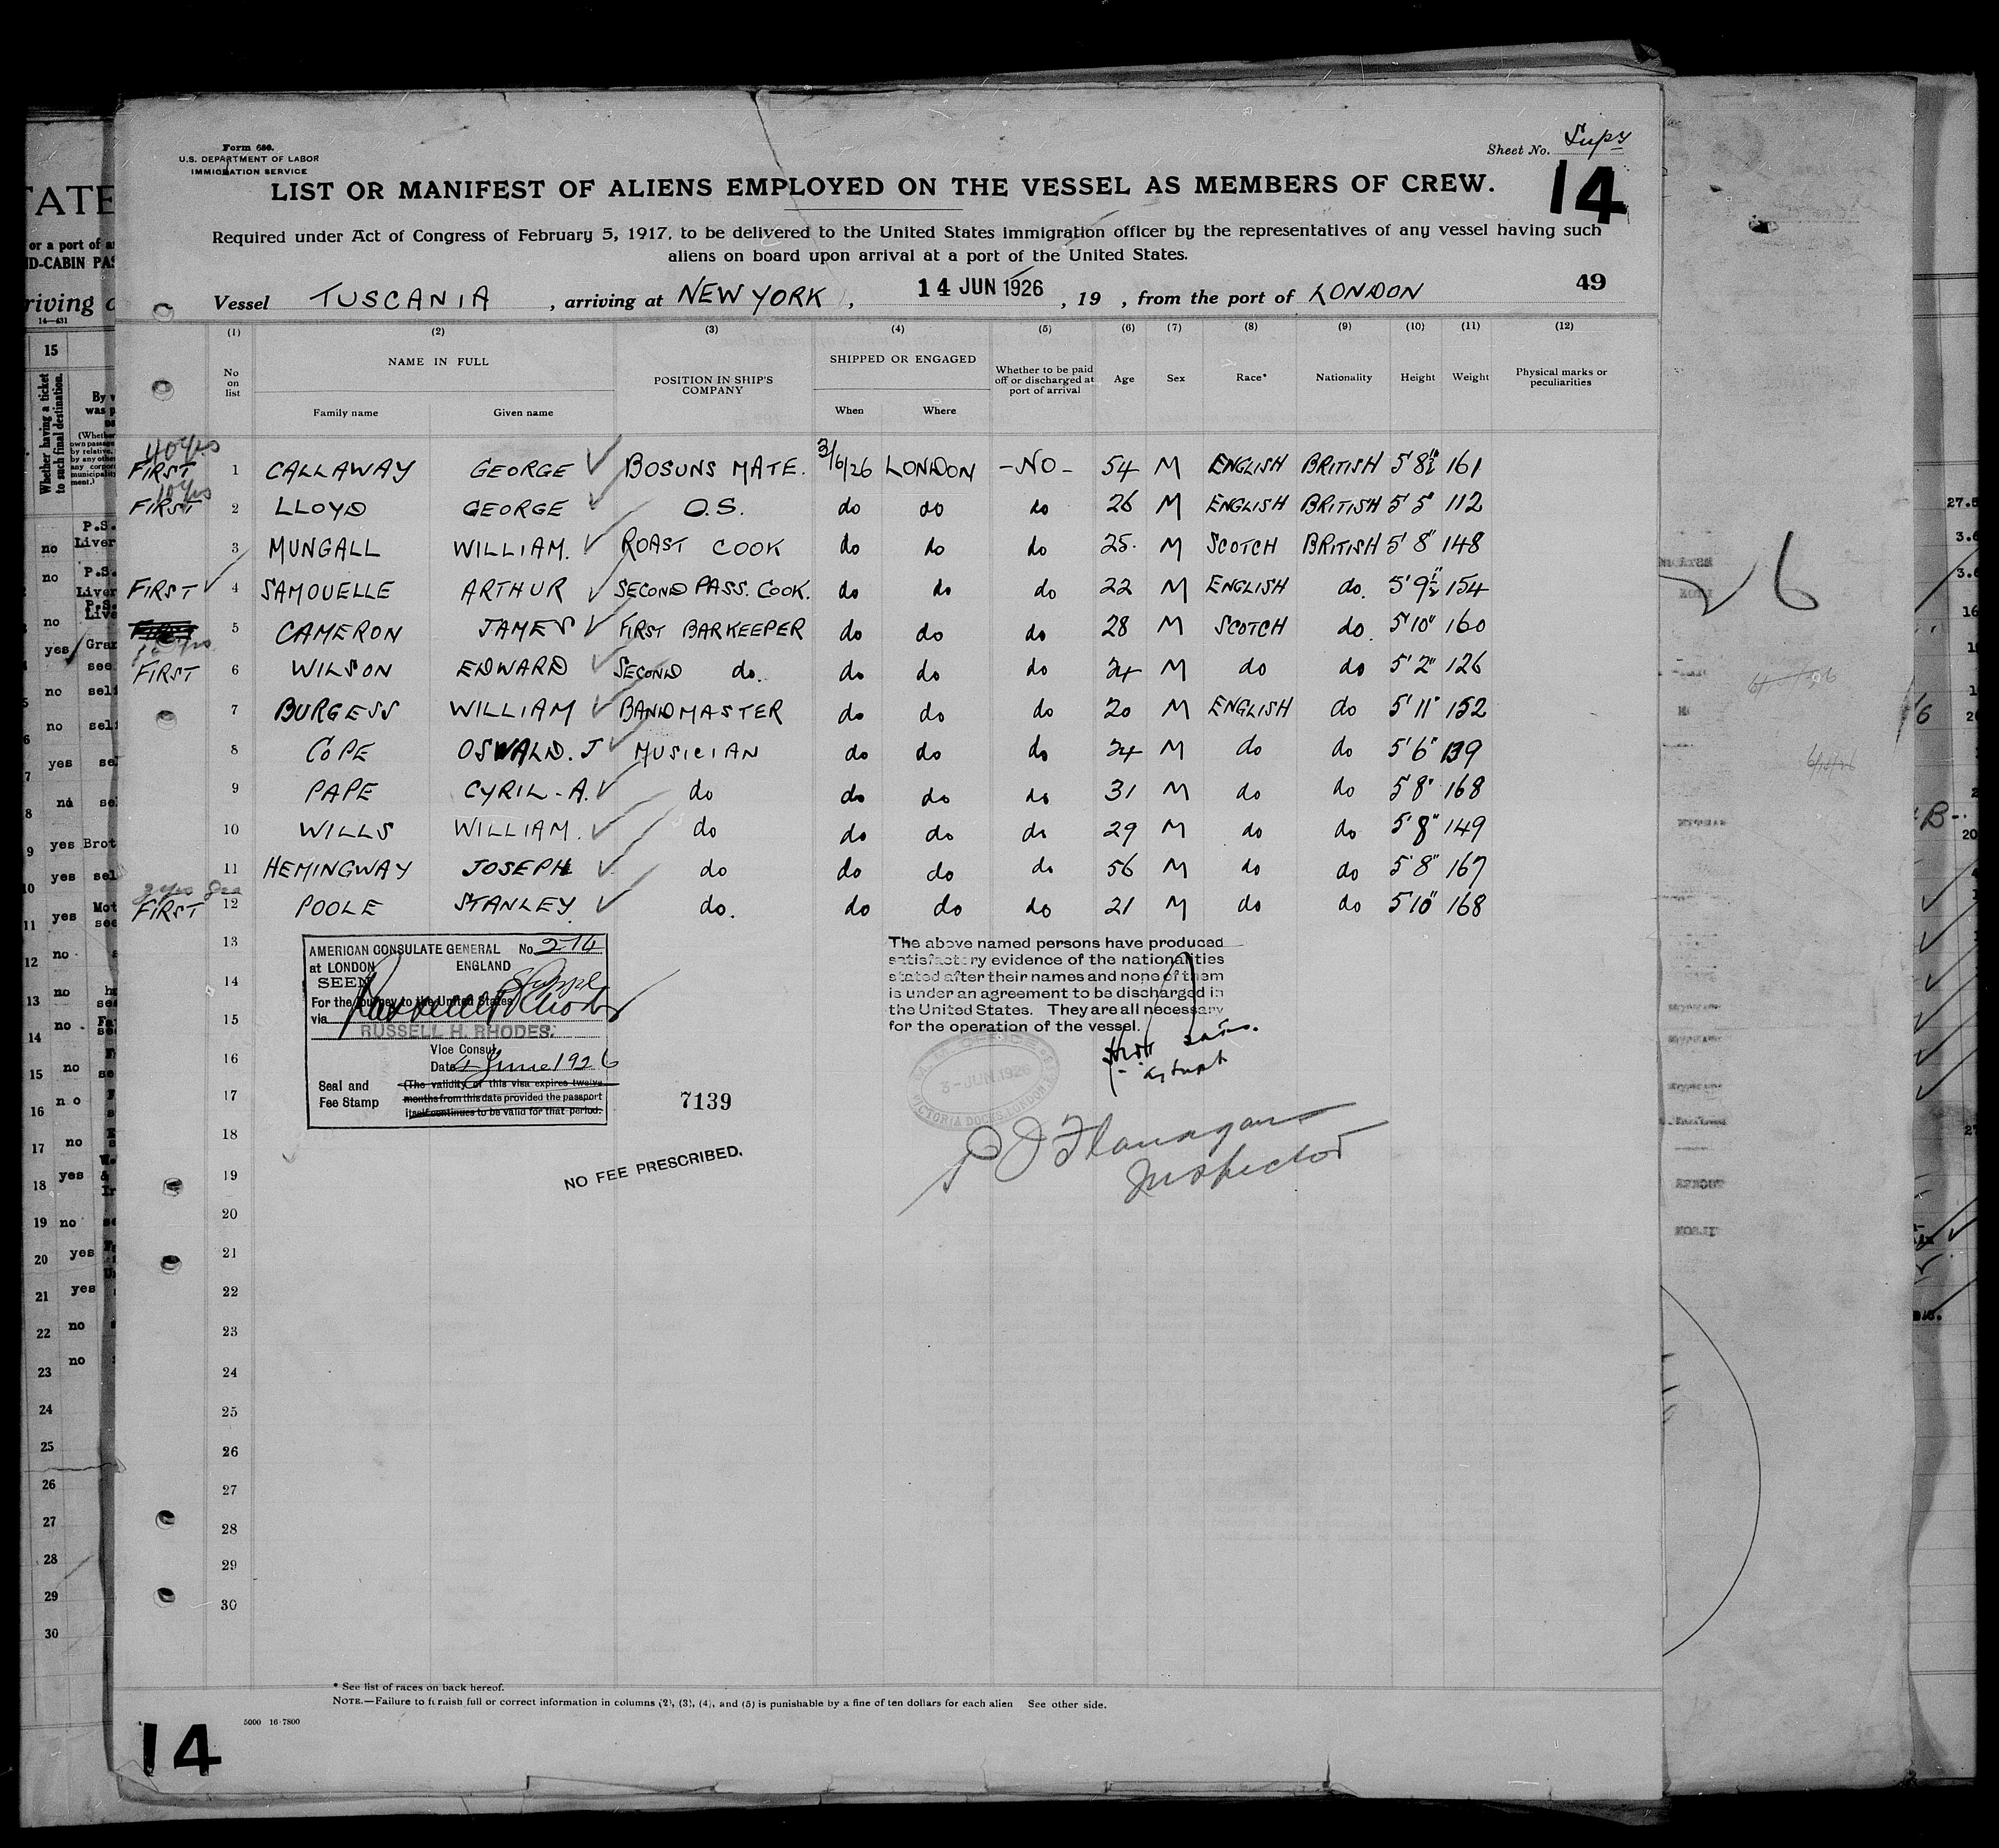 Form 680.
U.S. DEPARTMENT OF LABOR
IMMIGRATION SERVICE
Sheet No. Supy
14
LIST OR MANIFEST OF ALIENS EMPLOYED ON THE VESSEL AS MEMBERS OF CREW.
Required under Act of Congress of February 5, 1917, to be delivered to the United States immigration officer by the representatives of any vessel having such
aliens on board upon arrival at a port of the United States.
49
Vessel TUSCANIA, arriving at NEW YORK, 14 JUN 1926, 19 , from the port of LONDON
(1) (2) (3) (4) (5) (6) (7) (8) (9) (10) (11) (12)
No on list NAME IN FULL Family name Given name POSITION IN SHIP'S COMPANY SHIPPED OR ENGAGED When Where Whether to be paid off or discharged at port of arrival Age Sex Race* Nationality Height Weight Physical marks or peculiarities
40 yrs
FIRST 1 CALLAWAY GEORGE ✓ BOSUNS MATE. 3/6/26 LONDON -NO- 54 M ENGLISH BRITISH 5' 8½" 161
10 yrs
FIRST 2 LLOYD GEORGE ✓ O.S. do do do 26 M ENGLISH BRITISH 5' 5" 112
3 MUNGALL WILLIAM. ✓ ROAST COOK do do do 25. M SCOTCH BRITISH 5' 8" 148
FIRST ✓ 4 SAMOUELLE ARTHUR ✓ SECOND PASS. COOK. do do do 22 M ENGLISH do. 5' 9½" 154
5 CAMERON JAMES ✓ FIRST BARKEEPER do do do 28 M SCOTCH do. 5' 10" 160
FIRST 6 WILSON EDWARD ✓ SECOND do. do do do 24 M do do 5' 2" 126
7 BURGESS WILLIAM ✓ BANDMASTER do do do 20 M ENGLISH do 5' 11" 152
8 COPE OSWALD. J ✓ MUSICIAN do do do 24 M do do 5' 6" 139
9 PAPE CYRIL - A. ✓ do do do do 31 M do do 5' 8" 168
10 WILLS WILLIAM. ✓ do do do do 29 M do do 5' 8" 149
11 HEMINGWAY JOSEPH ✓ do do do do 56 M do do 5' 8" 167
FIRST 12 POOLE STANLEY ✓ do. do do do 21 M do do 5' 10" 168
13
14
15
16
17
18
19
20
21
22
23
24
25
26
27
28
29
30
AMERICAN CONSULATE GENERAL No 274
at LONDON ENGLAND
SEEN
For the journey to the United States
via
RUSSELL H. RHODES.
Vice Consul
Date 4 June 1926
Seal and Fee Stamp
(The validity of this visa expires twelve
months from this date provided the passport
itself continues to be valid for that period.
7139
NO FEE PRESCRIBED.
The above named persons have produced
satisfactory evidence of the nationalities
stated after their names and none of them
is under an agreement to be discharged in
the United States. They are all necessary
for the operation of the vessel.
3-JUN.1926
VICTORIA DOCKS, LONDON
P J Flanagan
Inspector
* See list of races on back hereof.
NOTE.—Failure to furnish full or correct information in columns (2), (3), (4), and (5) is punishable by a fine of ten dollars for each alien See other side.
5000 16-7800
14